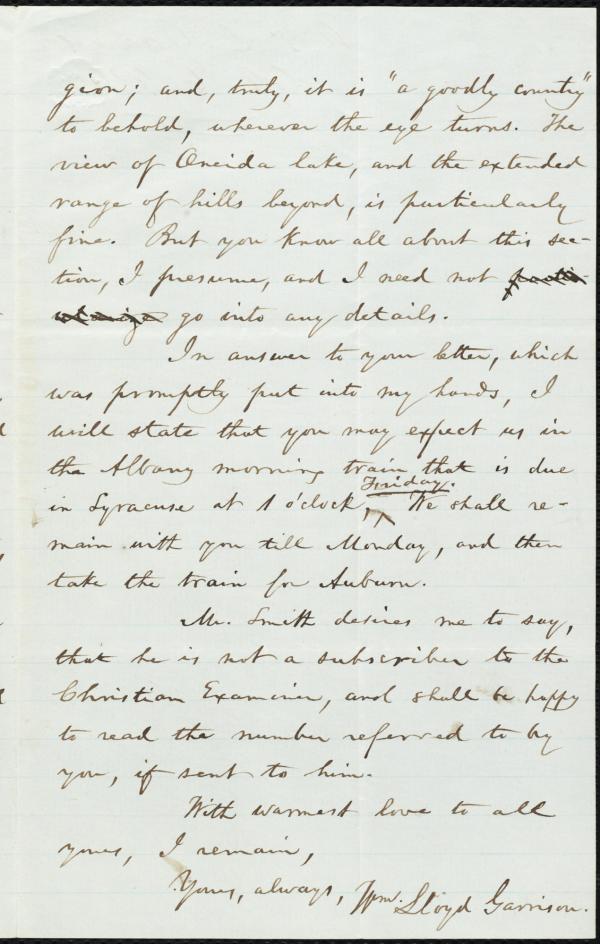 gion; and, truly, it is "a goodly country"
to behold, wherever the eye turns. The
view of Oneida lake, and the extended
range of hills beyond, is particularly
fine. But you know all about this sec-
tion, I presume, and I need not parti-
cularize go into any details.
In answer to your letter, which
was promptly put into my hands, I
will state that you may expect us in
the Albany morning train that is due
in Syracuse at 1 o'clock, Friday. We shall re-
main with you till Monday, and then
take the train for Auburn.
Mr. Smith desires me to say,
that he is not a subscriber to the
Christian Examiner, and shall be happy
to read the number referred to by
you, if sent to him.
With warmest love to all
yours, I remain,
Yours, always, Wm. Lloyd Garrison.